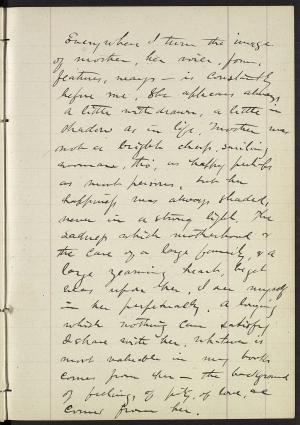 Everywhere I turn the image
of mother, her voice, form,
features, ways - is constantly
before me. She appears always
a little withdrawn, a little in
shadow as in life. Mother was
not a bright, cheery, smiling
woman, tho', as happy perhaps
as most persons, but her
happiness was always shaded,
never in a strong light. The
sadness which motherhood &
the care of a large family, & a
large yearning heart, beget
was upon her. I see myself
in her perpetually. A longing
which nothing can satisfy
I share with her, whatever is
most valuable in my books
comes from her - the background
of feeling, of pity, of love, &c
comes from her.